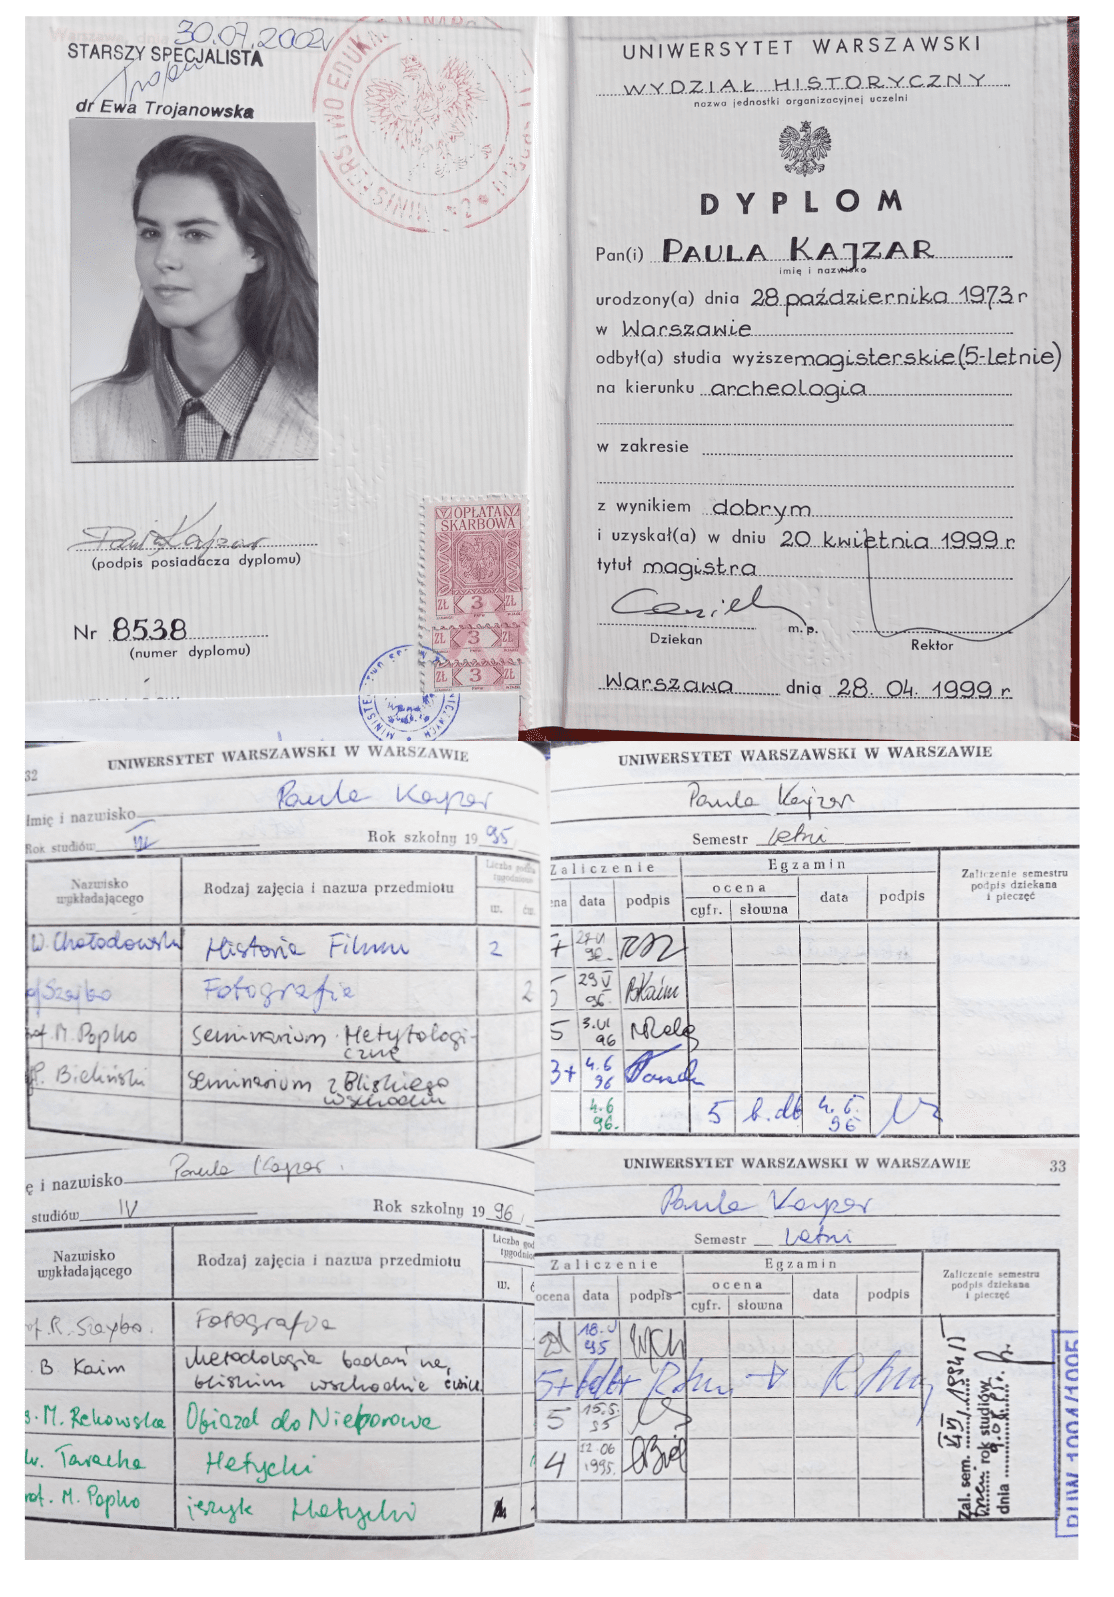 30.07.2002
STARSZY SPECJALISTA
dr Ewa Trojanowska
MINISTERSTWO EDUKA
OPŁATA
SKARBOWA
ZŁ 3 ZŁ
ZŁ 3 ZŁ
ZŁ 3 ZŁ
Paula Kajzar
(podpis posiadacza dyplomu)
Nr 8538
(numer dyplomu)
UNIWERSYTET WARSZAWSKI
WYDZIAŁ HISTORYCZNY
nazwa jednostki organizacyjnej uczelni
DYPLOM
Pan(i) PAULA KAJZAR
imię i nazwisko
urodzony(a) dnia 28 października 1973 r
w Warszawie
odbył(a) studia wyższe magisterskie (5-letnie)
na kierunku archeologia
w zakresie
z wynikiem dobrym
i uzyskał(a) w dniu 20 kwietnia 1999 r
tytuł magistra
Dziekan m.p. Rektor
Warszawa dnia 28. 04. 1999 r
32 UNIWERSYTET WARSZAWSKI W WARSZAWIE
Imię i nazwisko Paula Kajzar
Rok studiów III Rok szkolny 19 95
Nazwisko wykładającego Rodzaj zajęcia i nazwa przedmiotu
W. Chołodowski Historia Filmu 2
Szajbo Fotografia 2
M. Popko Seminarium Hetytologi-
czne
P. Bieliński Seminarium z Bliskiego
Wschodu
UNIWERSYTET WARSZAWSKI W WARSZAWIE
Paula Kajzar
Semestr letni
Zaliczenie Egzamin Zaliczenie semestru
podpis dziekana
i pieczęć
ocena
data podpis cyfr. słowna data podpis
96
29 V 96 BKaim
5 3.VI 96
3+ 4.6 96
4.6 96. 5 b.db 4.6. 96
ę i nazwisko Paula Kajzar
studiów IV Rok szkolny 19 96
Nazwisko wykładającego Rodzaj zajęcia i nazwa przedmiotu
R. Szajbo. Fotografia
B. Kaim Metodologia badań na
bliskim wschodzie ćwicz.
M. Rekowska Objazd do Nieborowa
Taracha Hetycki
M. Popko język Hetycki
UNIWERSYTET WARSZAWSKI W WARSZAWIE 33
Paula Kajzar
Semestr letni
Zaliczenie Egzamin Zaliczenie semestru
podpis dziekana
i pieczęć
ocena
ocena data podpis cyfr. słowna data podpis
zal 18.V 95
5+
5 15.5. 95
4 12.06 1995.
Zal. sem.
rok studiów
dnia
BUW 1994/1995